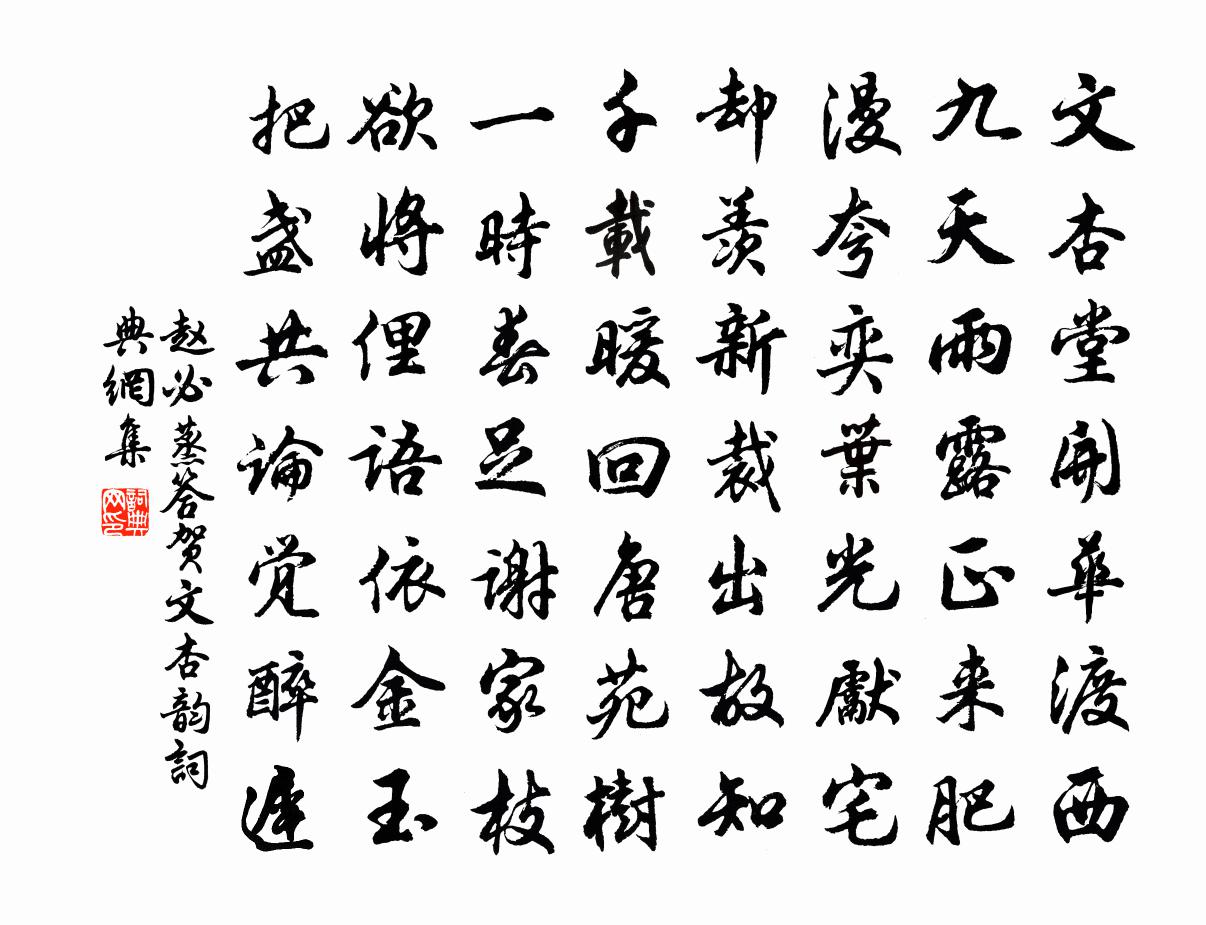 文杏堂開華渡西
九天雨露正来肥
漫夸奕葉光獻宅
却羨新裁出故知
千載暖回唐苑樹
一時春足謝家枝
欲將俚語依金玉
把盞共論覚醉遲
赵必蒸答贺文杏韵詞
典網集
詞典网印